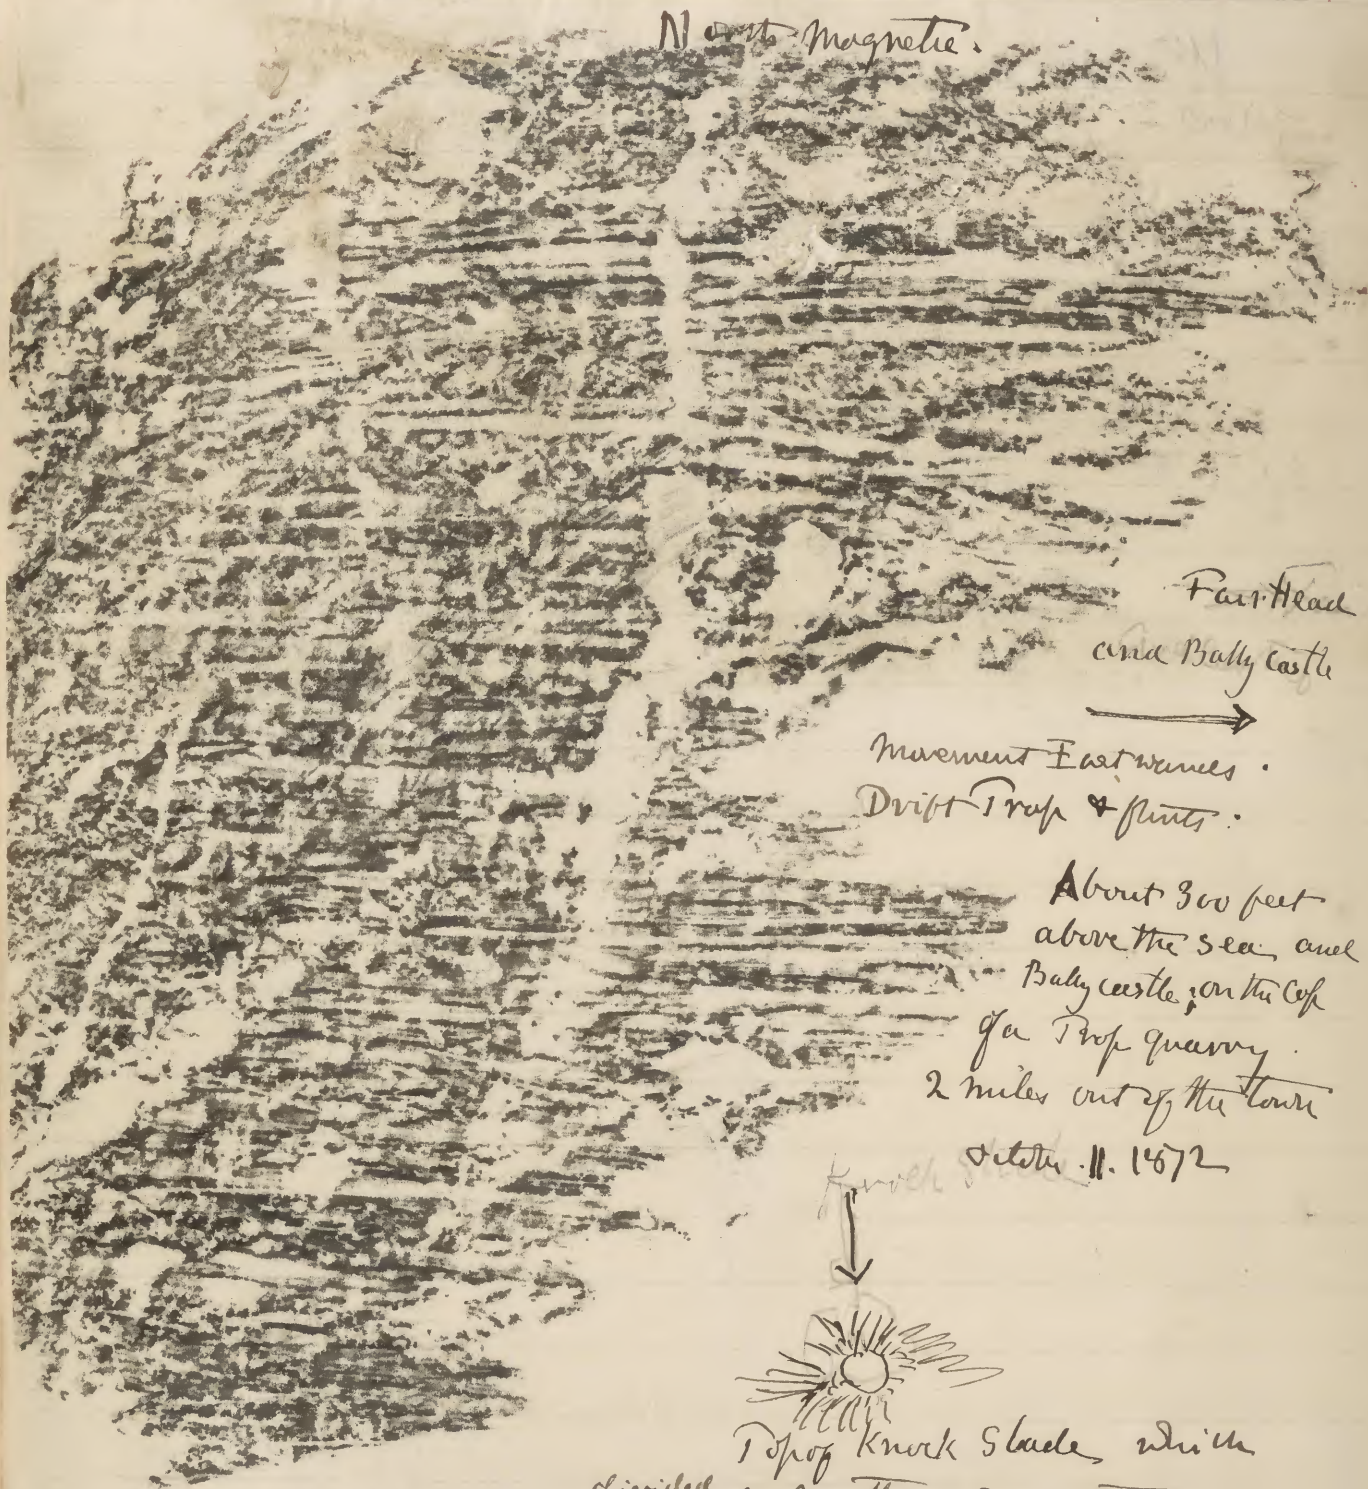 North Magnetic.
Fair Head
and Bally Castle
Movement Eastwards.
Drift Trap & flints.
About 300 feet
above the sea and
Bally castle, on the top
of a Trap quarry.
2 miles out of the town
October. 11. 1872
Knock Slade
Top of Knock Slade which
divided